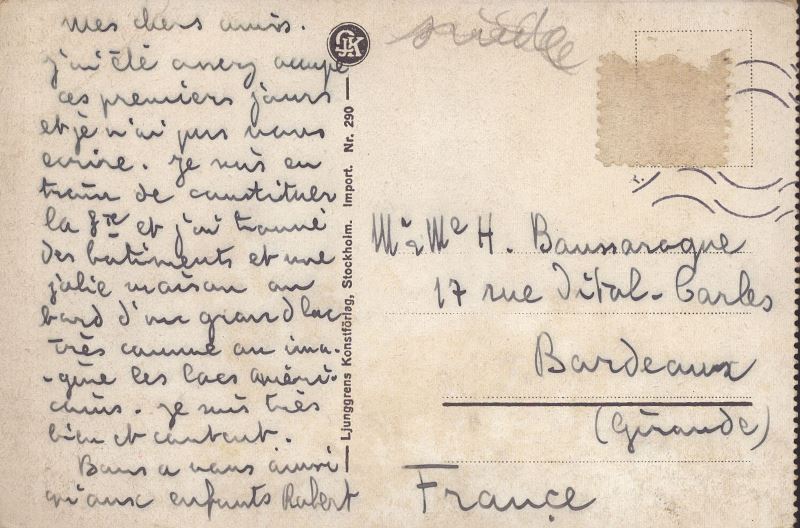 mes chers amis.
j'ai été assez occupé
ces premiers jours
et je n'ai pas vous
ecrire. Je suis en
train de constituer
la Sté et j'ai trouvé
des bâtiments et une
jolie maison au
bord d'un grand lac
très comme on ima-
-gine les lacs améri-
cains. Je suis très
bien et content.
Bons a vous ainsi
qu'aux enfants Robert
GJK
Ljunggrens Konstförlag, Stockholm. Import. Nr. 290
suède
Mr & Me H. Baussaroque
17 rue Vital-Carles
Bordeaux
(Gironde)
France